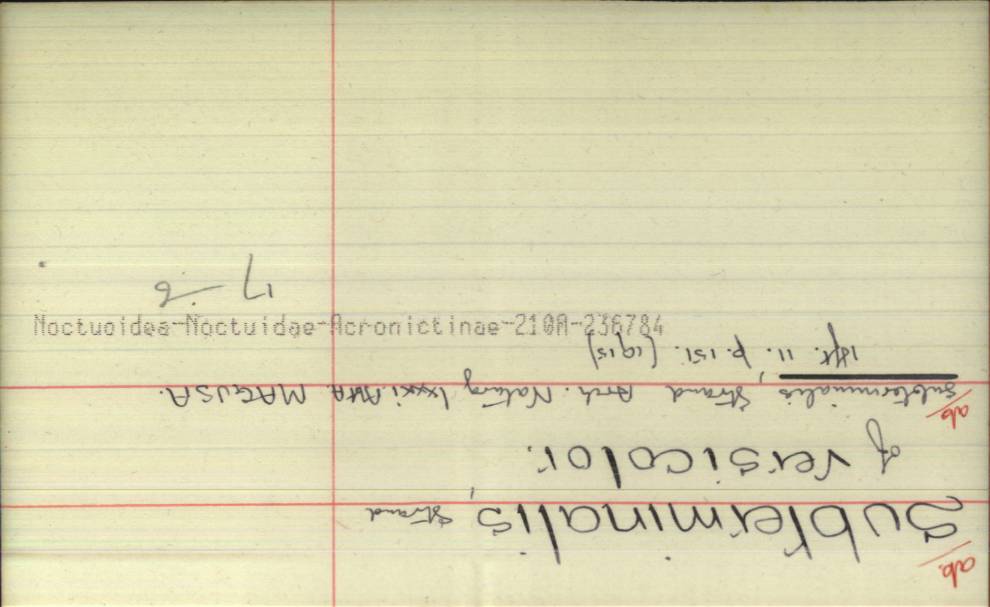 ab.
Subterminalis, Strand
of versicolor.
ab.
subterminalis, Strand Arch. Naturg lxxxi. Abt. A MAGUSA.
Hft. 11. p. 151. (1915)
Noctuoidea-Noctuidae-Acronictinae-210A-236784
17—6